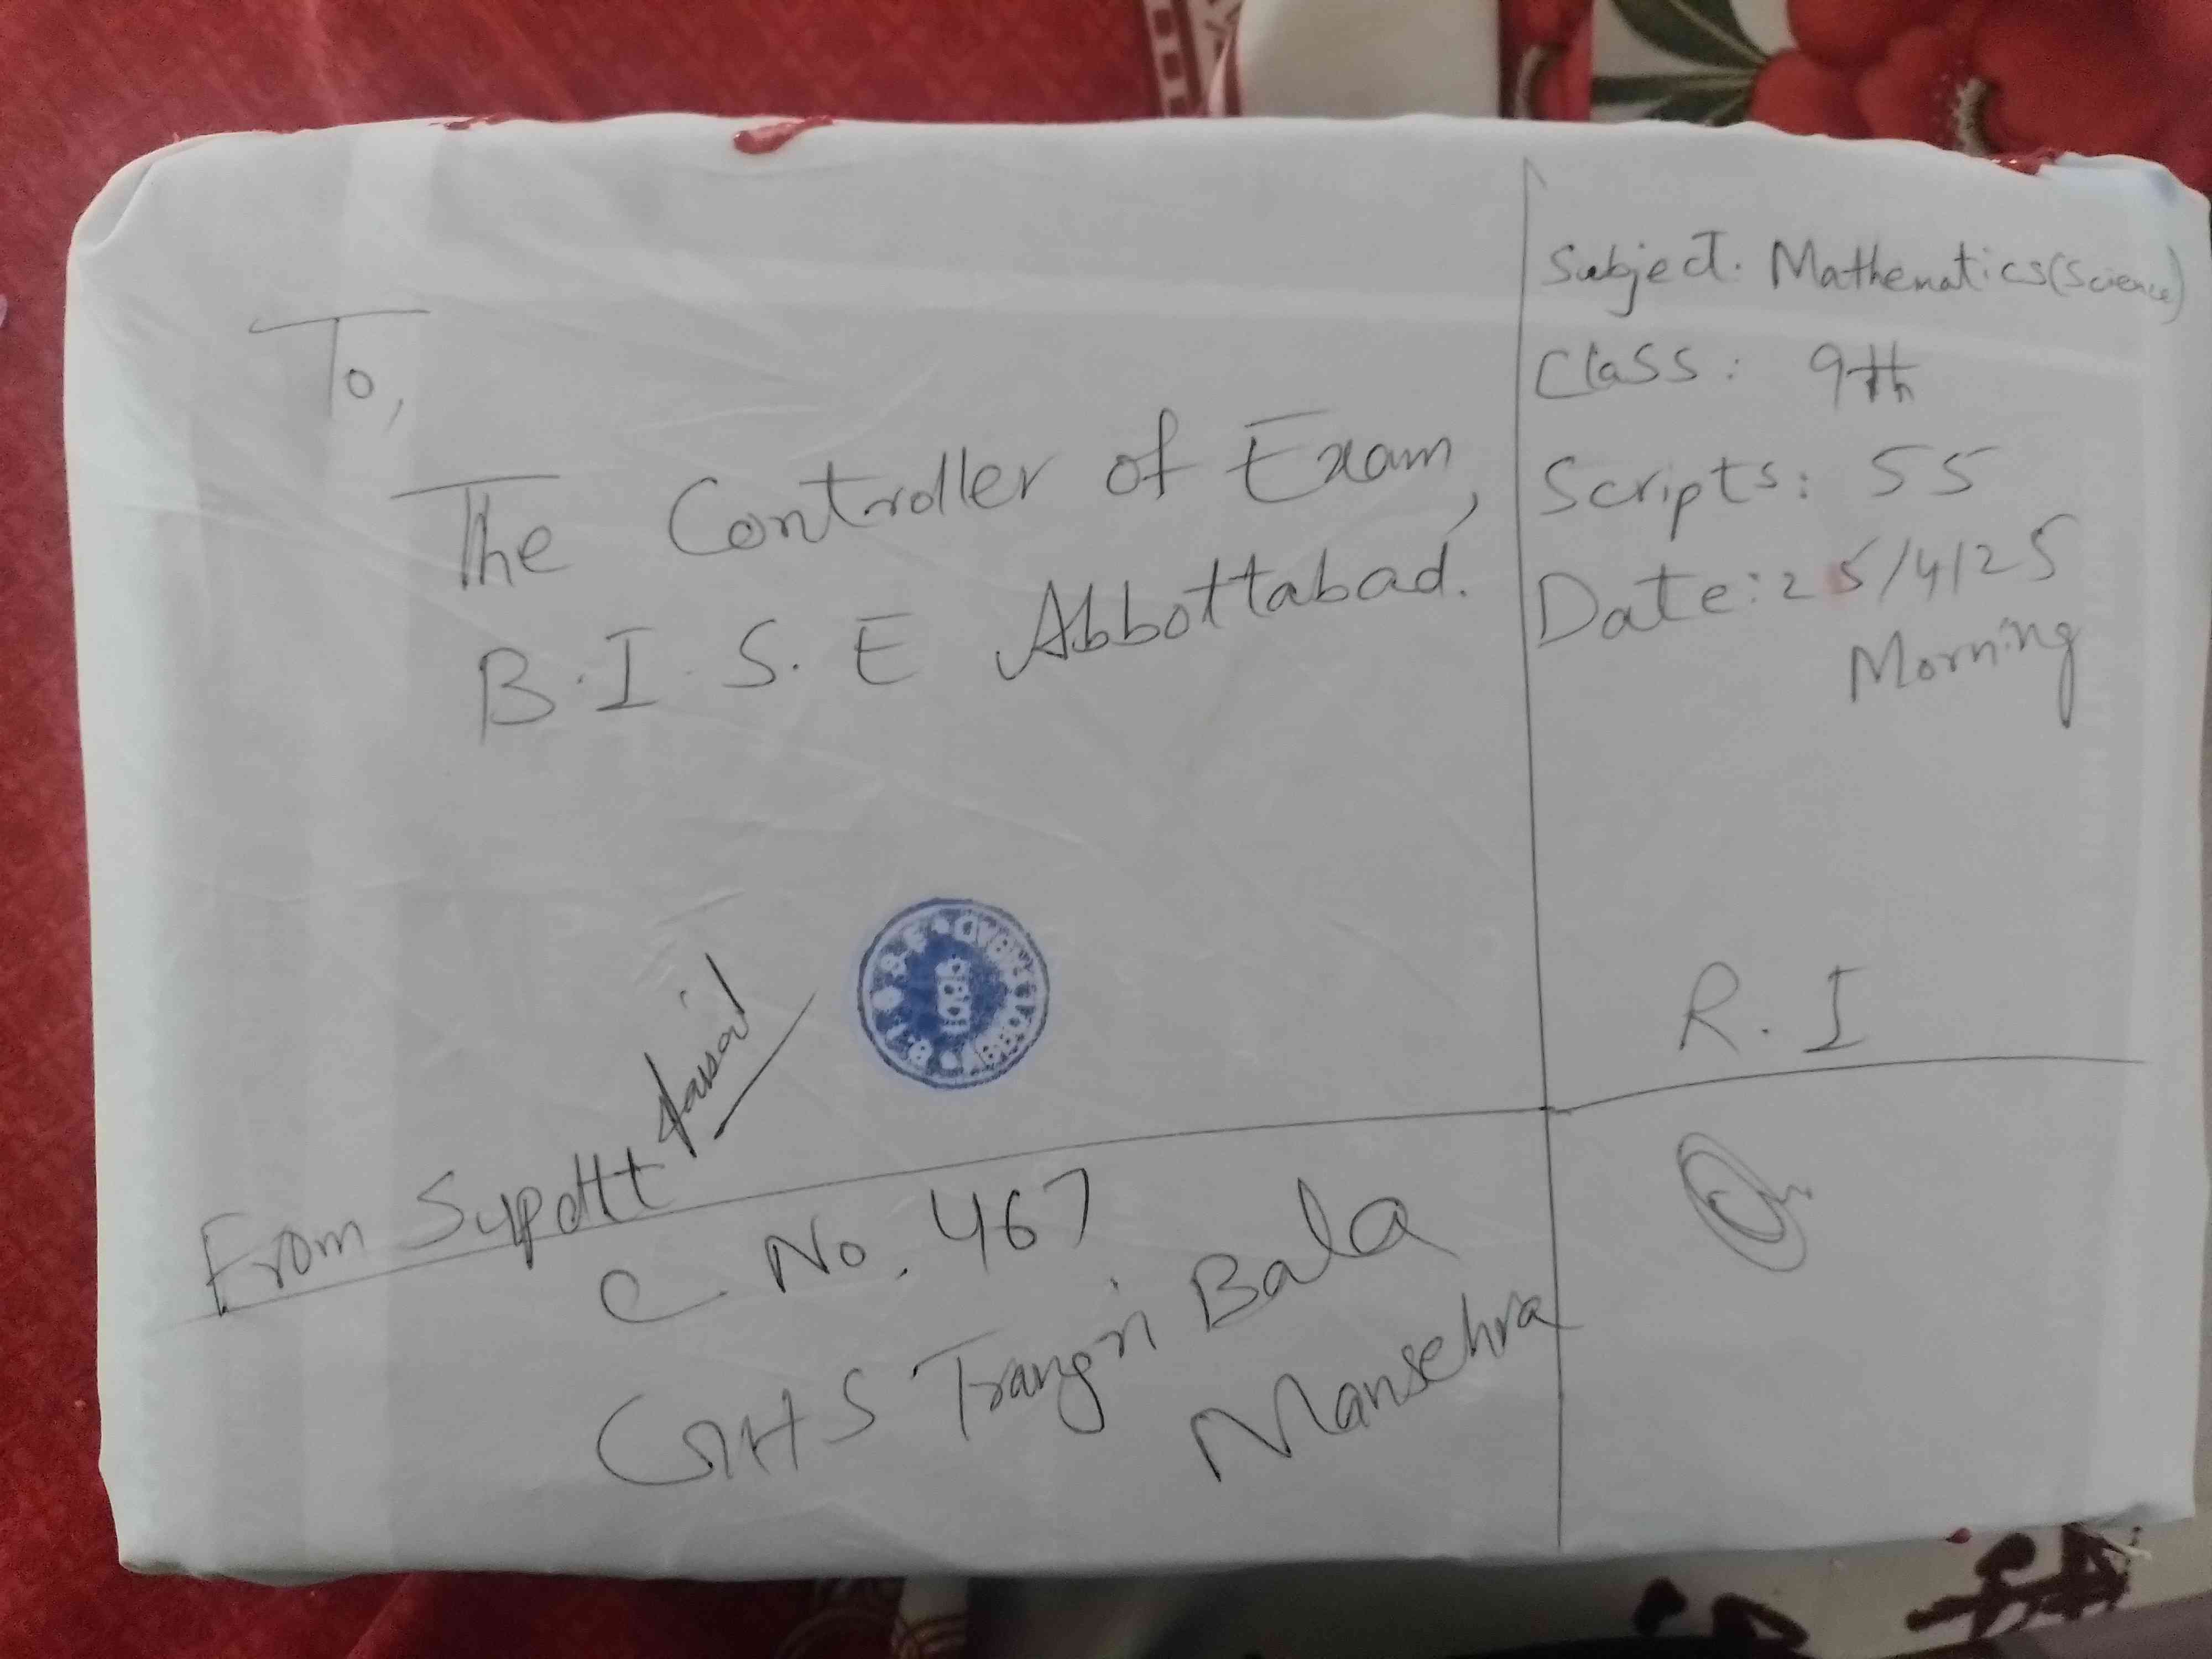 To,
The Controller of Exam,
B.I.S.E Abbottabad.
Subject. Mathematics (Science)
Class: 9th
Scripts: 55
Date: 25/4/25
Morning
R.I
From Supdtt
C No. 467
GHS Trangri Bala
Mansehra